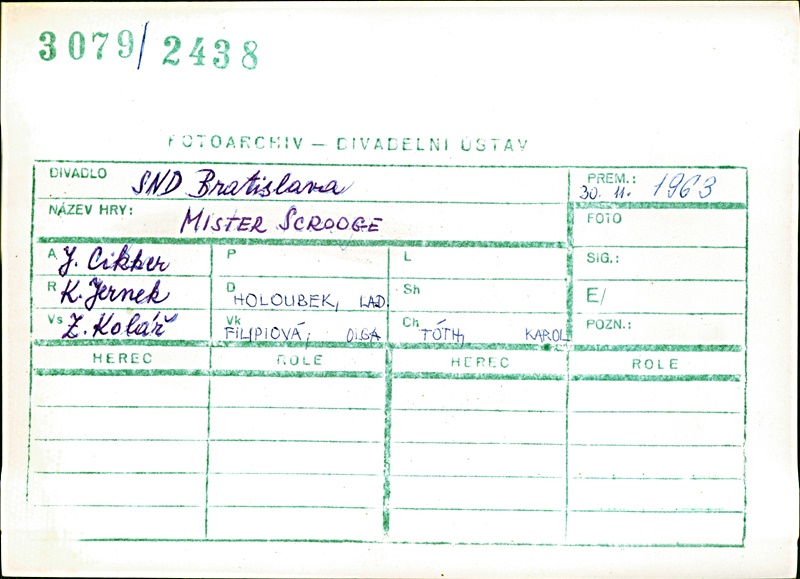 3079/2438
FOTOARCHIV — DIVADELNI USTAV
DIVADLO SND Bratislava
PREM.: 30. 11. 1963
NÁZEV HRY: MISTER SCROOGE
FOTO
A J. Cikker P L SIG.:
R K. Jernek D HOLOUBEK, LAD. Sh E/
Vs Z. Kolář Vk FILIPIOVÁ, OLGA Ch TÓTH, KAROL POZN.:
HEREC ROLE HEREC ROLE